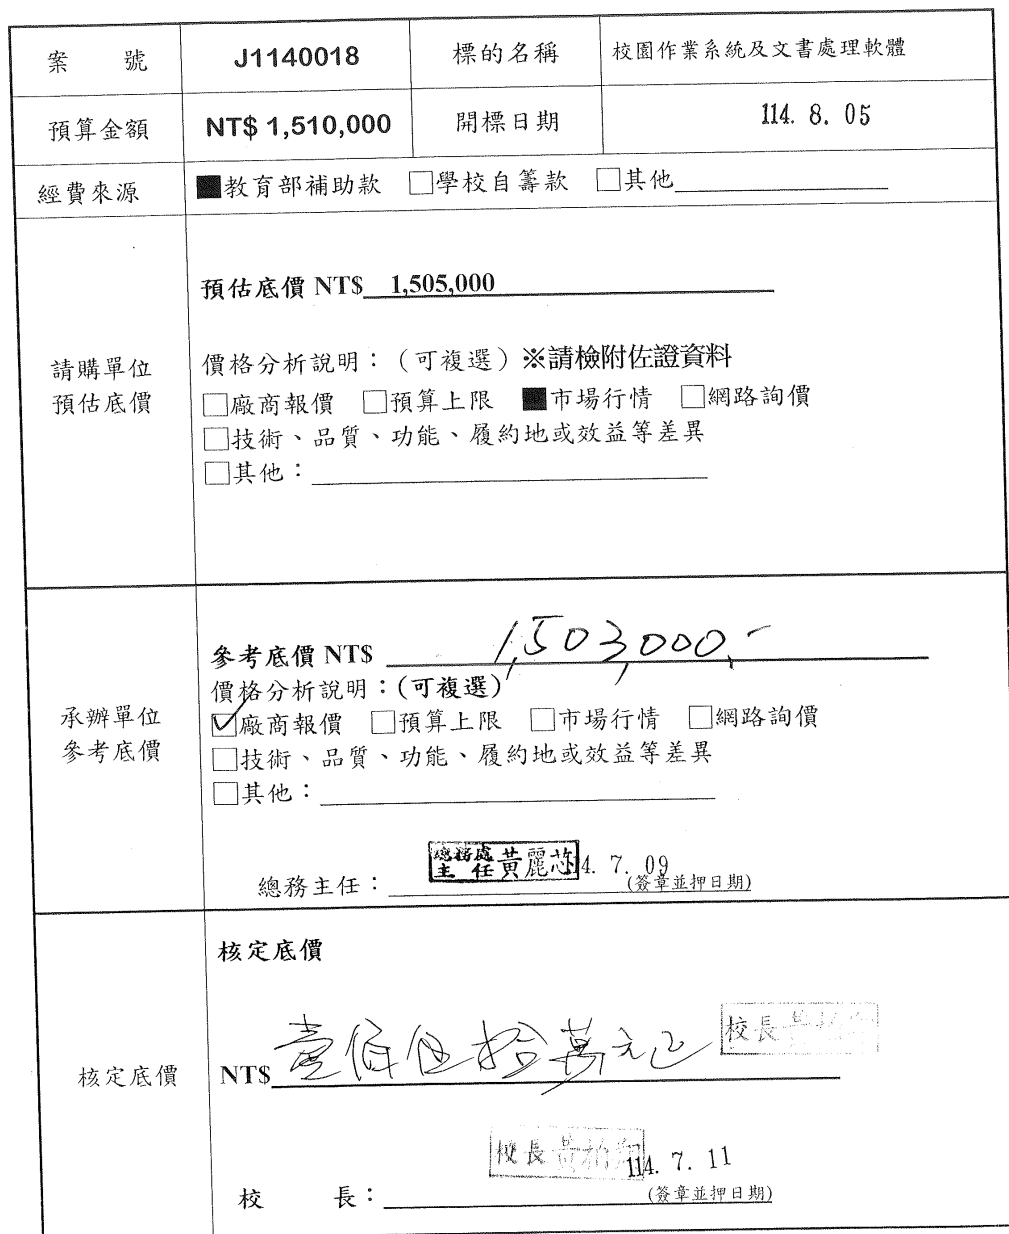 案　號 J1140018 標的名稱 校園作業系統及文書處理軟體
預算金額 NT$ 1,510,000 開標日期 114. 8. 05
經費來源 ■教育部補助款 □學校自籌款 □其他
請購單位
預估底價
預估底價 NT$ 1,505,000
價格分析說明：（可複選）※請檢附佐證資料
□廠商報價 □預算上限 ■市場行情 □網路詢價
□技術、品質、功能、履約地或效益等差異
□其他：
承辦單位
參考底價
參考底價 NT$ 1,503,000.-
價格分析說明：(可複選)
☑廠商報價 □預算上限 □市場行情 □網路詢價
□技術、品質、功能、履約地或效益等差異
□其他：
總務處
主任 黃麗芯 114. 7. 09
總務主任： (簽章並押日期)
核定底價
核定底價
NT$ 壹佰伍拾萬元正 校長
校長黃柏 114. 7. 11
校　長： (簽章並押日期)